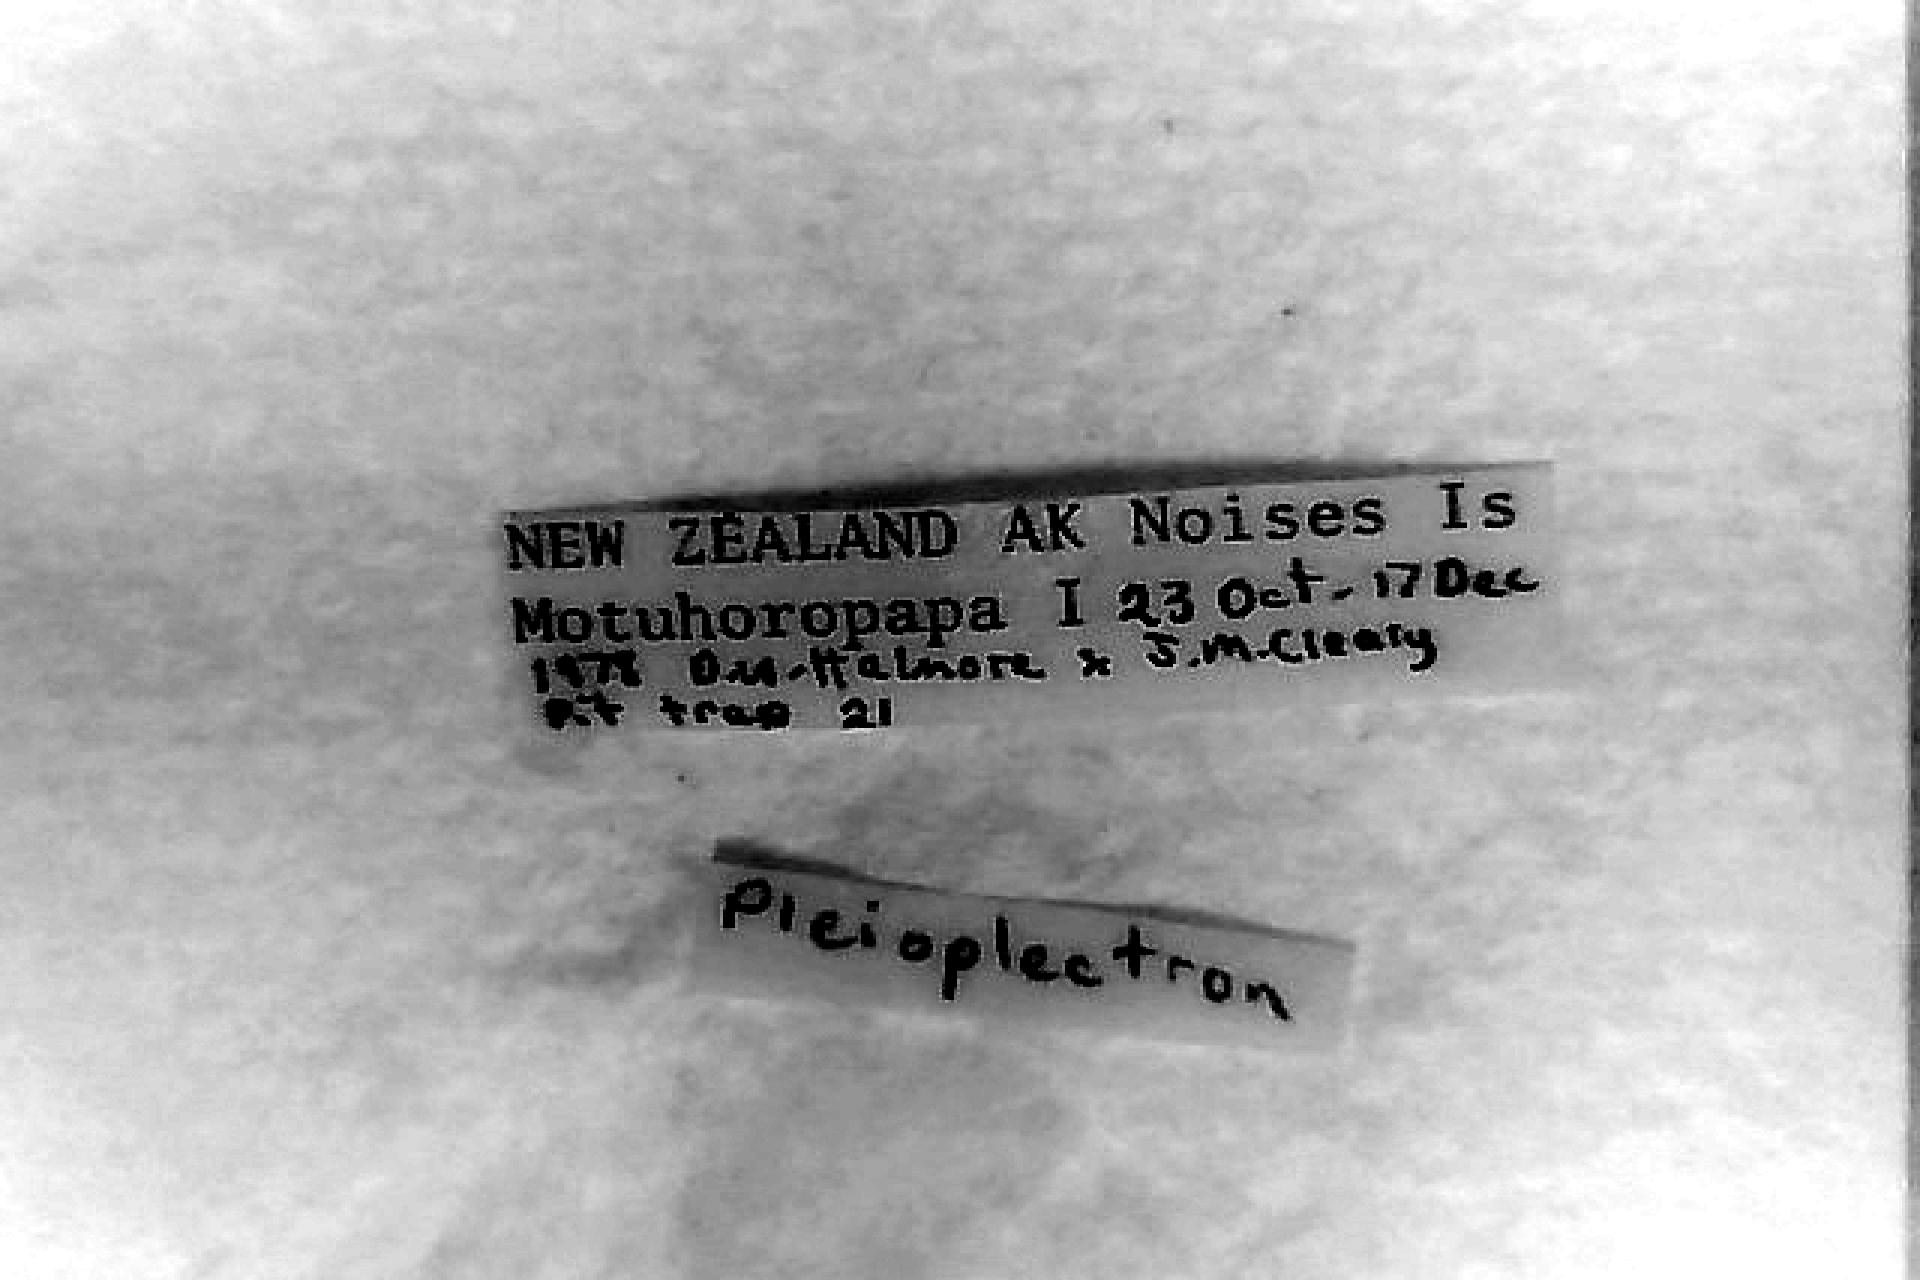 NEW ZEALAND AK Noises Is
Motuhoropapa I 23 Oct - 17 Dec
1978 Helmore & J.M.Cleary
Pit trap 21
Pleioplectron